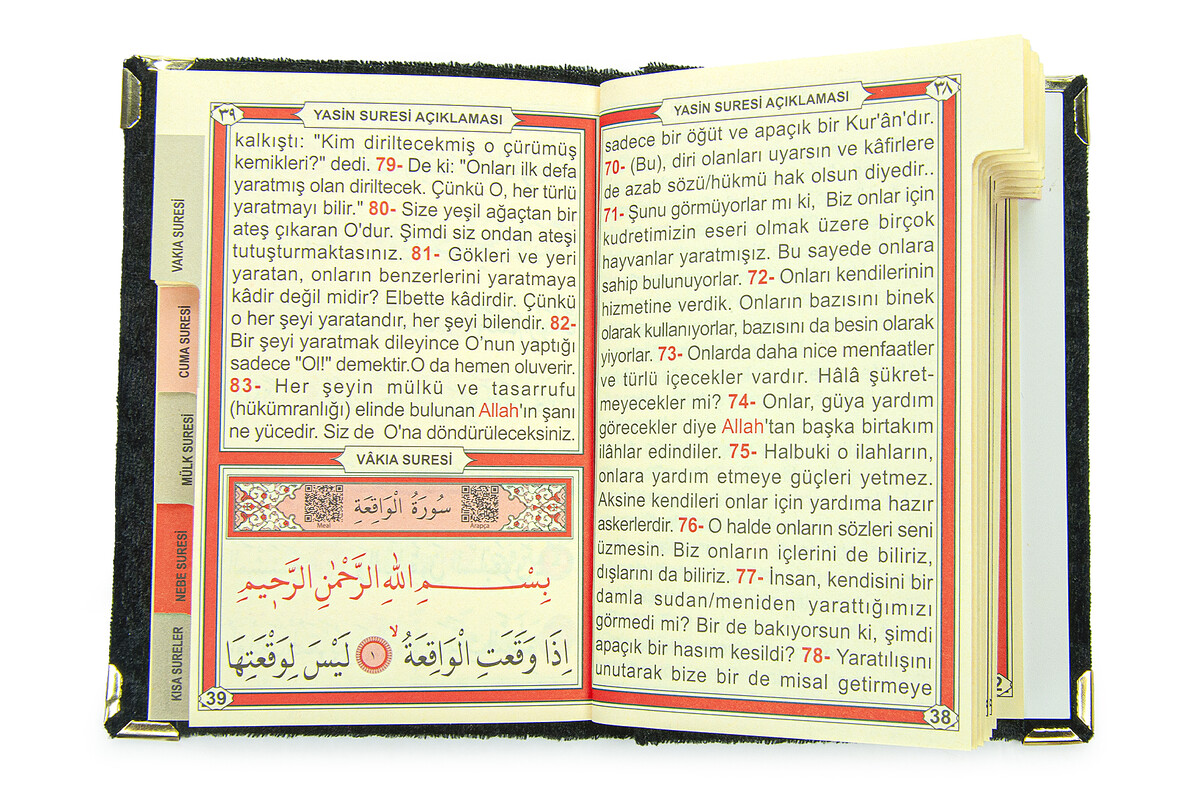 ٣٨
YASİN SURESİ AÇIKLAMASI
sadece bir öğüt ve apaçık bir Kur'ân'dır.
70- (Bu), diri olanları uyarsın ve kâfirlere
de azab sözü/hükmü hak olsun diyedir..
71- Şunu görmüyorlar mı ki, Biz onlar için
kudretimizin eseri olmak üzere birçok
hayvanlar yaratmışız. Bu sayede onlara
sahip bulunuyorlar. 72- Onları kendilerinin
hizmetine verdik. Onların bazısını binek
olarak kullanıyorlar, bazısını da besin olarak
yiyorlar. 73- Onlarda daha nice menfaatler
ve türlü içecekler vardır. Hâlâ şükret-
meyecekler mi? 74- Onlar, güya yardım
görecekler diye Allah'tan başka birtakım
ilâhlar edindiler. 75- Halbuki o ilahların,
onlara yardım etmeye güçleri yetmez.
Aksine kendileri onlar için yardıma hazır
askerlerdir. 76- O halde onların sözleri seni
üzmesin. Biz onların içlerini de biliriz,
dışlarını da biliriz. 77- İnsan, kendisini bir
damla sudan/meniden yarattığımızı
görmedi mi? Bir de bakıyorsun ki, şimdi
apaçık bir hasım kesildi? 78- Yaratılışını
unutarak bize bir de misal getirmeye
38
٣٩
YASİN SURESİ AÇIKLAMASI
kalkıştı: "Kim diriltecekmiş o çürümüş
kemikleri?" dedi. 79- De ki: "Onları ilk defa
yaratmış olan diriltecek. Çünkü O, her türlü
yaratmayı bilir." 80- Size yeşil ağaçtan bir
ateş çıkaran O'dur. Şimdi siz ondan ateşi
tutuşturmaktasınız. 81- Gökleri ve yeri
yaratan, onların benzerlerini yaratmaya
kâdir değil midir? Elbette kâdirdir. Çünkü
o her şeyi yaratandır, her şeyi bilendir. 82-
Bir şeyi yaratmak dileyince O'nun yaptığı
sadece "Ol!" demektir.O da hemen oluverir.
83- Her şeyin mülkü ve tasarrufu
(hükümranlığı) elinde bulunan Allah'ın şanı
ne yücedir. Siz de O'na döndürüleceksiniz.
VÂKIA SURESİ
سُورَةُ الْوَاقِعَةِ
Meal
Arapça
بِسْمِ اللّٰهِ الرَّحْمٰنِ الرَّح۪يمِ
اِذَا وَقَعَتِ الْوَاقِعَةُ ۙ ١ لَيْسَ لِوَقْعَتِهَا
39
VAKIA SURESİ
CUMA SURESİ
MÜLK SURESİ
NEBE SURESİ
KISA SURELER